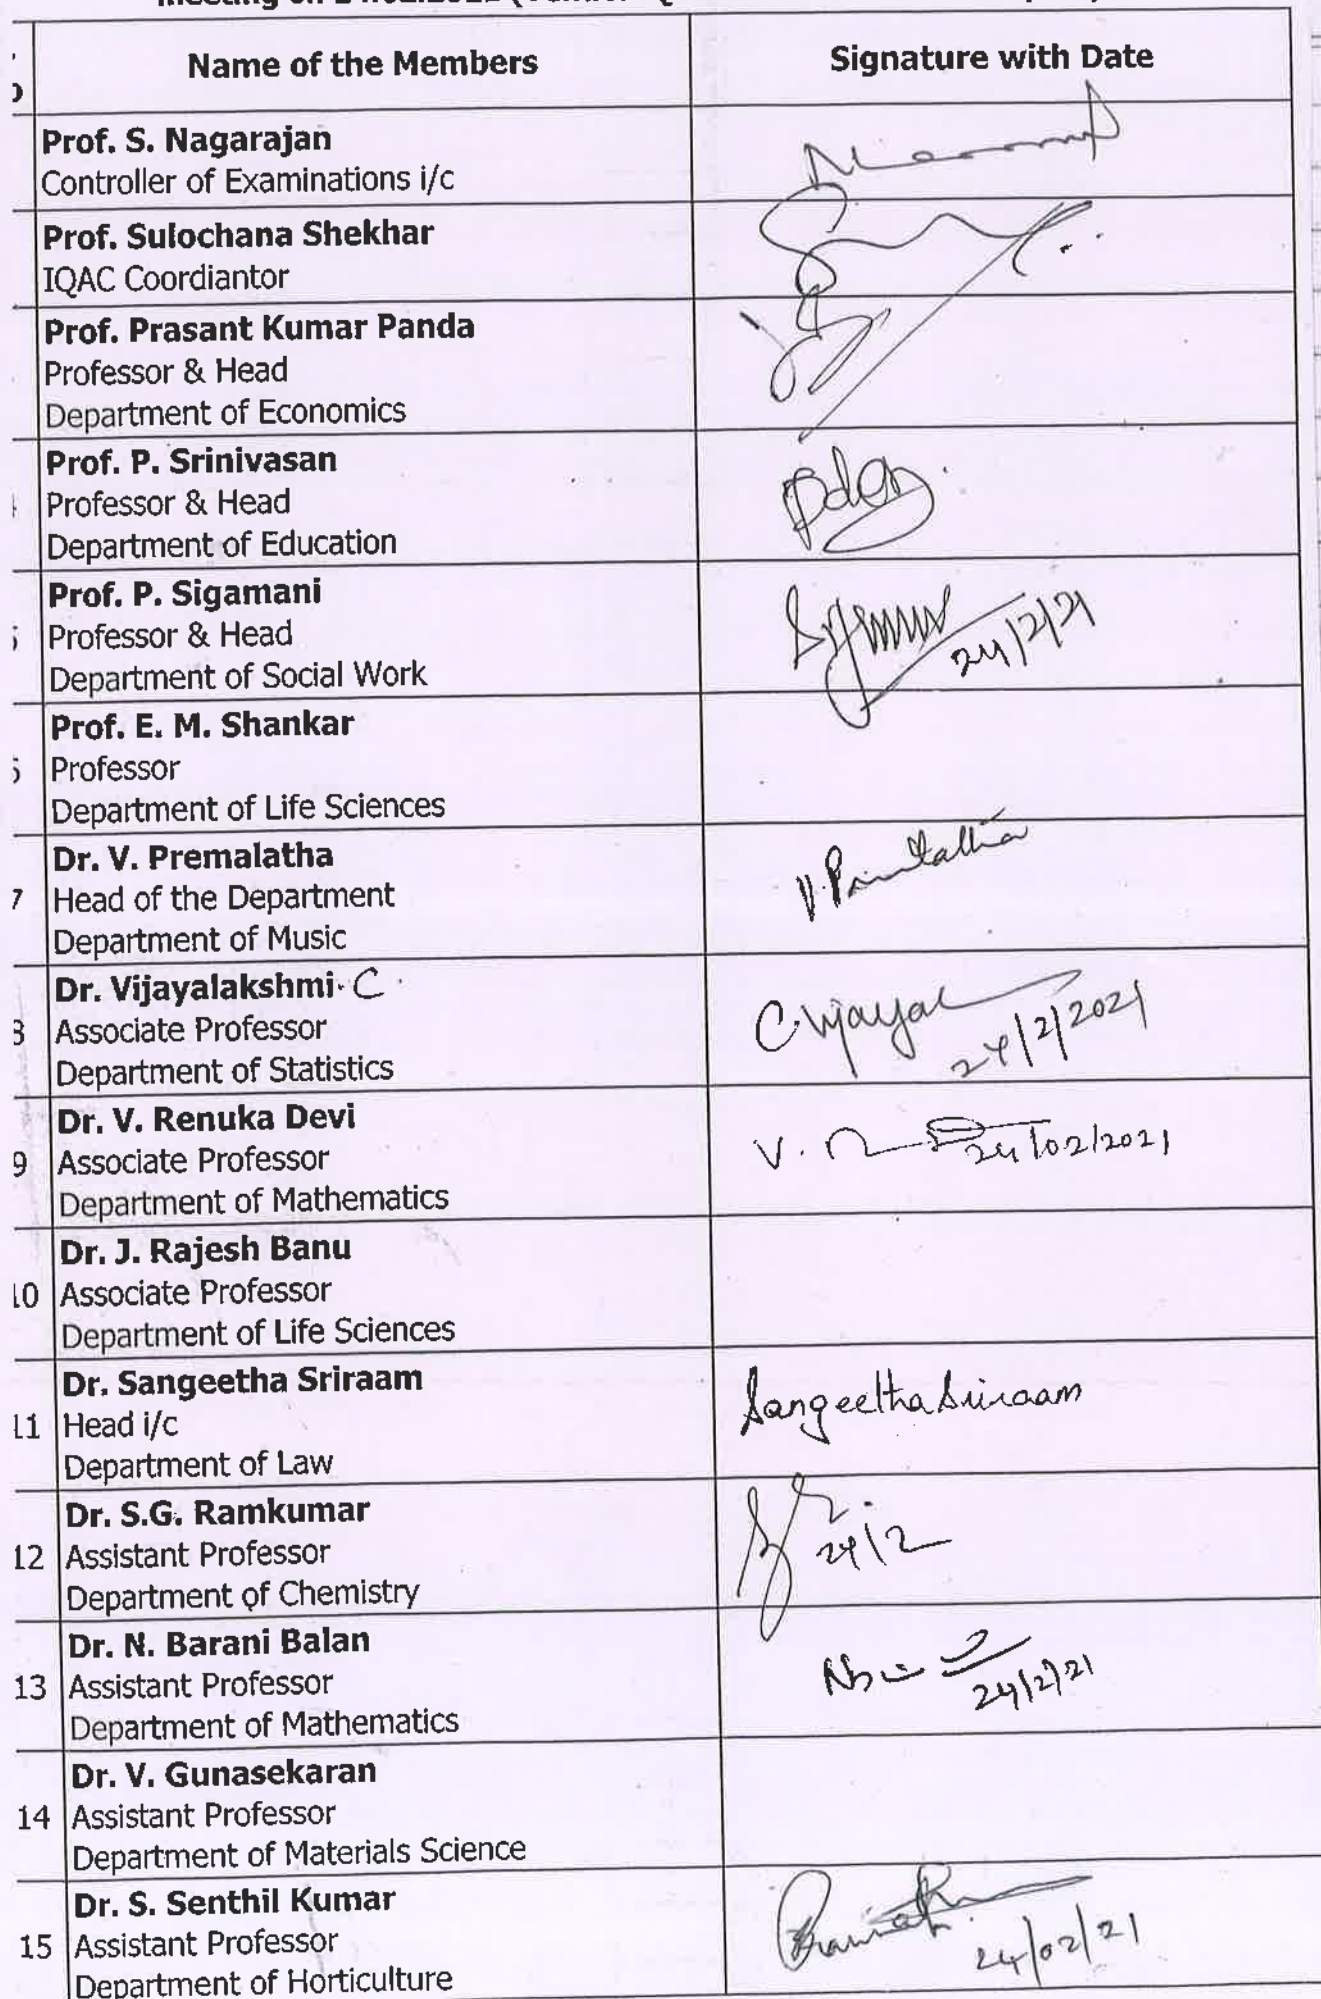 Name of the Members
Signature with Date
Prof. S. Nagarajan
Controller of Examinations i/c
Prof. Sulochana Shekhar
IQAC Coordiantor
Prof. Prasant Kumar Panda
Professor & Head
Department of Economics
Prof. P. Srinivasan
Professor & Head
Department of Education
Prof. P. Sigamani
Professor & Head
Department of Social Work
24/2/21
Prof. E. M. Shankar
Professor
Department of Life Sciences
Dr. V. Premalatha
7 Head of the Department
Department of Music
V. Premalatha
Dr. Vijayalakshmi. C.
Associate Professor
Department of Statistics
C. Vijayal
24/2/2021
Dr. V. Renuka Devi
9 Associate Professor
Department of Mathematics
V.
24/02/2021
Dr. J. Rajesh Banu
10 Associate Professor
Department of Life Sciences
Dr. Sangeetha Sriraam
11 Head i/c
Department of Law
Sangeetha Sriraam
Dr. S.G. Ramkumar
12 Assistant Professor
Department of Chemistry
24/2
Dr. N. Barani Balan
13 Assistant Professor
Department of Mathematics
24/2/21
Dr. V. Gunasekaran
14 Assistant Professor
Department of Materials Science
Dr. S. Senthil Kumar
15 Assistant Professor
Department of Horticulture
24/02/21